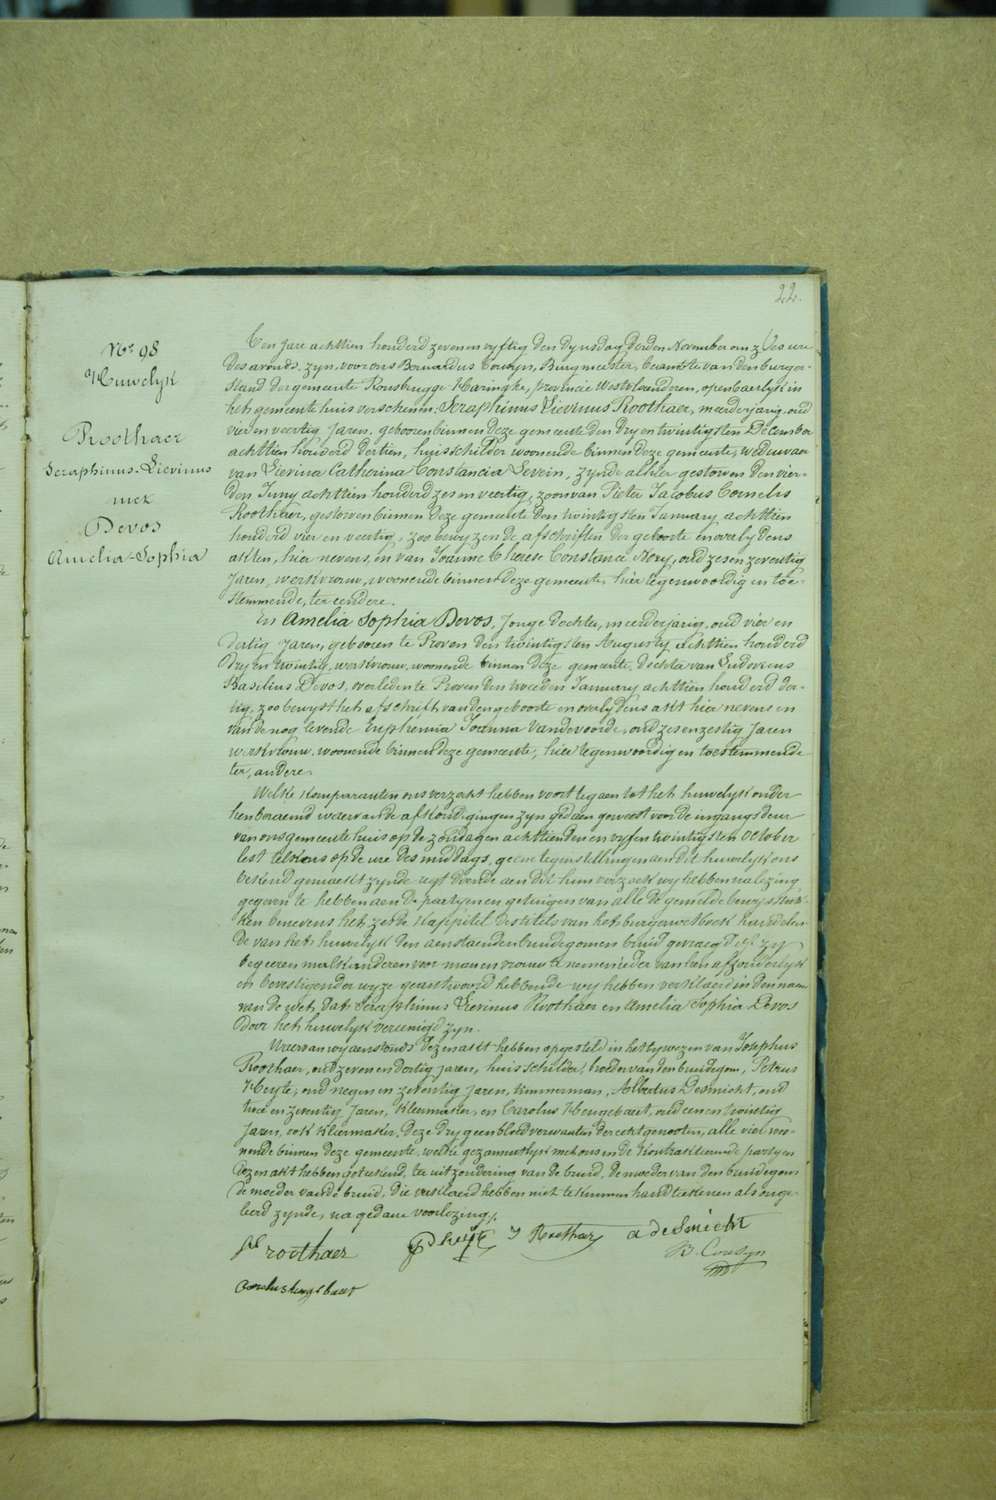 22.
No. 98
Huwelyk
Roothaer
Seraphinus-Lievinus
met
Devos
Amelia-Sophia
Ten jare achttien honderd zeven en vyftig den dynsdag derden November om zes ure
des avonds, zyn voor ons Bernardus Cousyn, Burgmeester, beambte van den burger-
stand der gemeente Rousbrugge Haringhe, provincie Westvlaenderen, openbaerlyk in
het gemeente huis verschenen: Seraphinus Lievinus Roothaer, meerderjarig, oud
vier en veertig Jaren, gebooren binnen deze gemeente den dry en twintigsten December
achttien honderd dertien, huisschilder woonende binnen deze gemeente, weduwaer
van Lievina Catharina Constancia Sevein, zynde alhier gestorven den vier-
den Juny achttien honderd zes en veertig, zoon van Pieter Jacobus Cornelis
Roothaer, gestorven binnen deze gemeente den twintigsten January achttien
honderd vier en veertig, zoo bewyzen de afschriften der geboorte en overlydens
akten, hier nevens, en van Joanne Therese Constance Nery, oud zes en zeventig
Jaren, werkvrouw, woonende binnen deze gemeente, hier tegenwoordig en toe-
stemmende, ter eendere.
En Amelia Sophia Devos, Jonge dochter, meerderjarig, oud vier en
dertig Jaren, gebooren te Proven den twintigsten Augusty achttien honderd
dry en twintig, werkvrouw, woonende binnen deze gemeente, dochter van Ludovicus
Basilius Devos, overleden te Proven den tweeden January achttien honderd der-
tig, zoo bewyst het afschrift van den geboorte en overlydens akt hier nevens en
van de nog levende Euphemia Joanna Vandevoorde, oud zes en zestig Jaren
werkvrouw, woonende binnen deze gemeente, hier tegenwoordig en toestemmende
ter, andere.
Welke komparanten ons verzocht hebben voort te gaen tot het huwelyk onder
hen beraemd waervan de afkondigingen zyn gedaen geweest voor de ingangsdeur
van ons gemeente huis op de zondagen achttienden en vyf en twintigsten October
lest telkens op de ure des middags, geene tegenstellingen aen dit huwelyk ons
bekend gemaekt zynde regt doende aen dit hun verzoek wy hebben na lezing
gegeven te hebben aen de partyen en getuigen van alle de gemelde bewysstuk-
ken benevens het zesde kappittel des titels van het burgerwetboek handelen-
de van het huwelyk den aenstaenden bruidegom en bruid gevraegd of zy
begeeren malkanderen voor man en vrouw te nemen ieder van hen afzonderlyk
en bevestigender wyze geantwoord hebbende wy hebben verklaerd in den naem
van de wet, dat Seraphinus Lievinus Roothaer en Amelia Sophia Devos
door het huwelyk vereenigd zyn.
Waervan wy aenstonds dezen akt hebben opgesteld in het bywezen van Josephus
Roothaer, oud zeven en dertig jaren, huisschilder, broeder van den bruidegom, Petrus
Heyte, oud negen en zeventig Jaren, timmerman, Albertus Desmicht, oud
twee en zeventig Jaren, kleermaker, en Carolus Hengebaert, oud een en twintig
Jaren, ook kleermaker, deze dry geen bloedverwanten der echtgenooten, alle vier wo-
nende binnen deze gemeente, welke gezamentlyk met ons en de kontrakteerende partyen
dezen akt hebben geteekend, ter uitzondering van de bruid, de moeder van den bruidegom
de moeder van de bruid, die verklaerd hebben niet te kunnen hand teekenen als onge-
leerd zynde, na gedane voorlezing.
SL roothaer P heyte J Roothaer a deSmicht
B. Cousyn